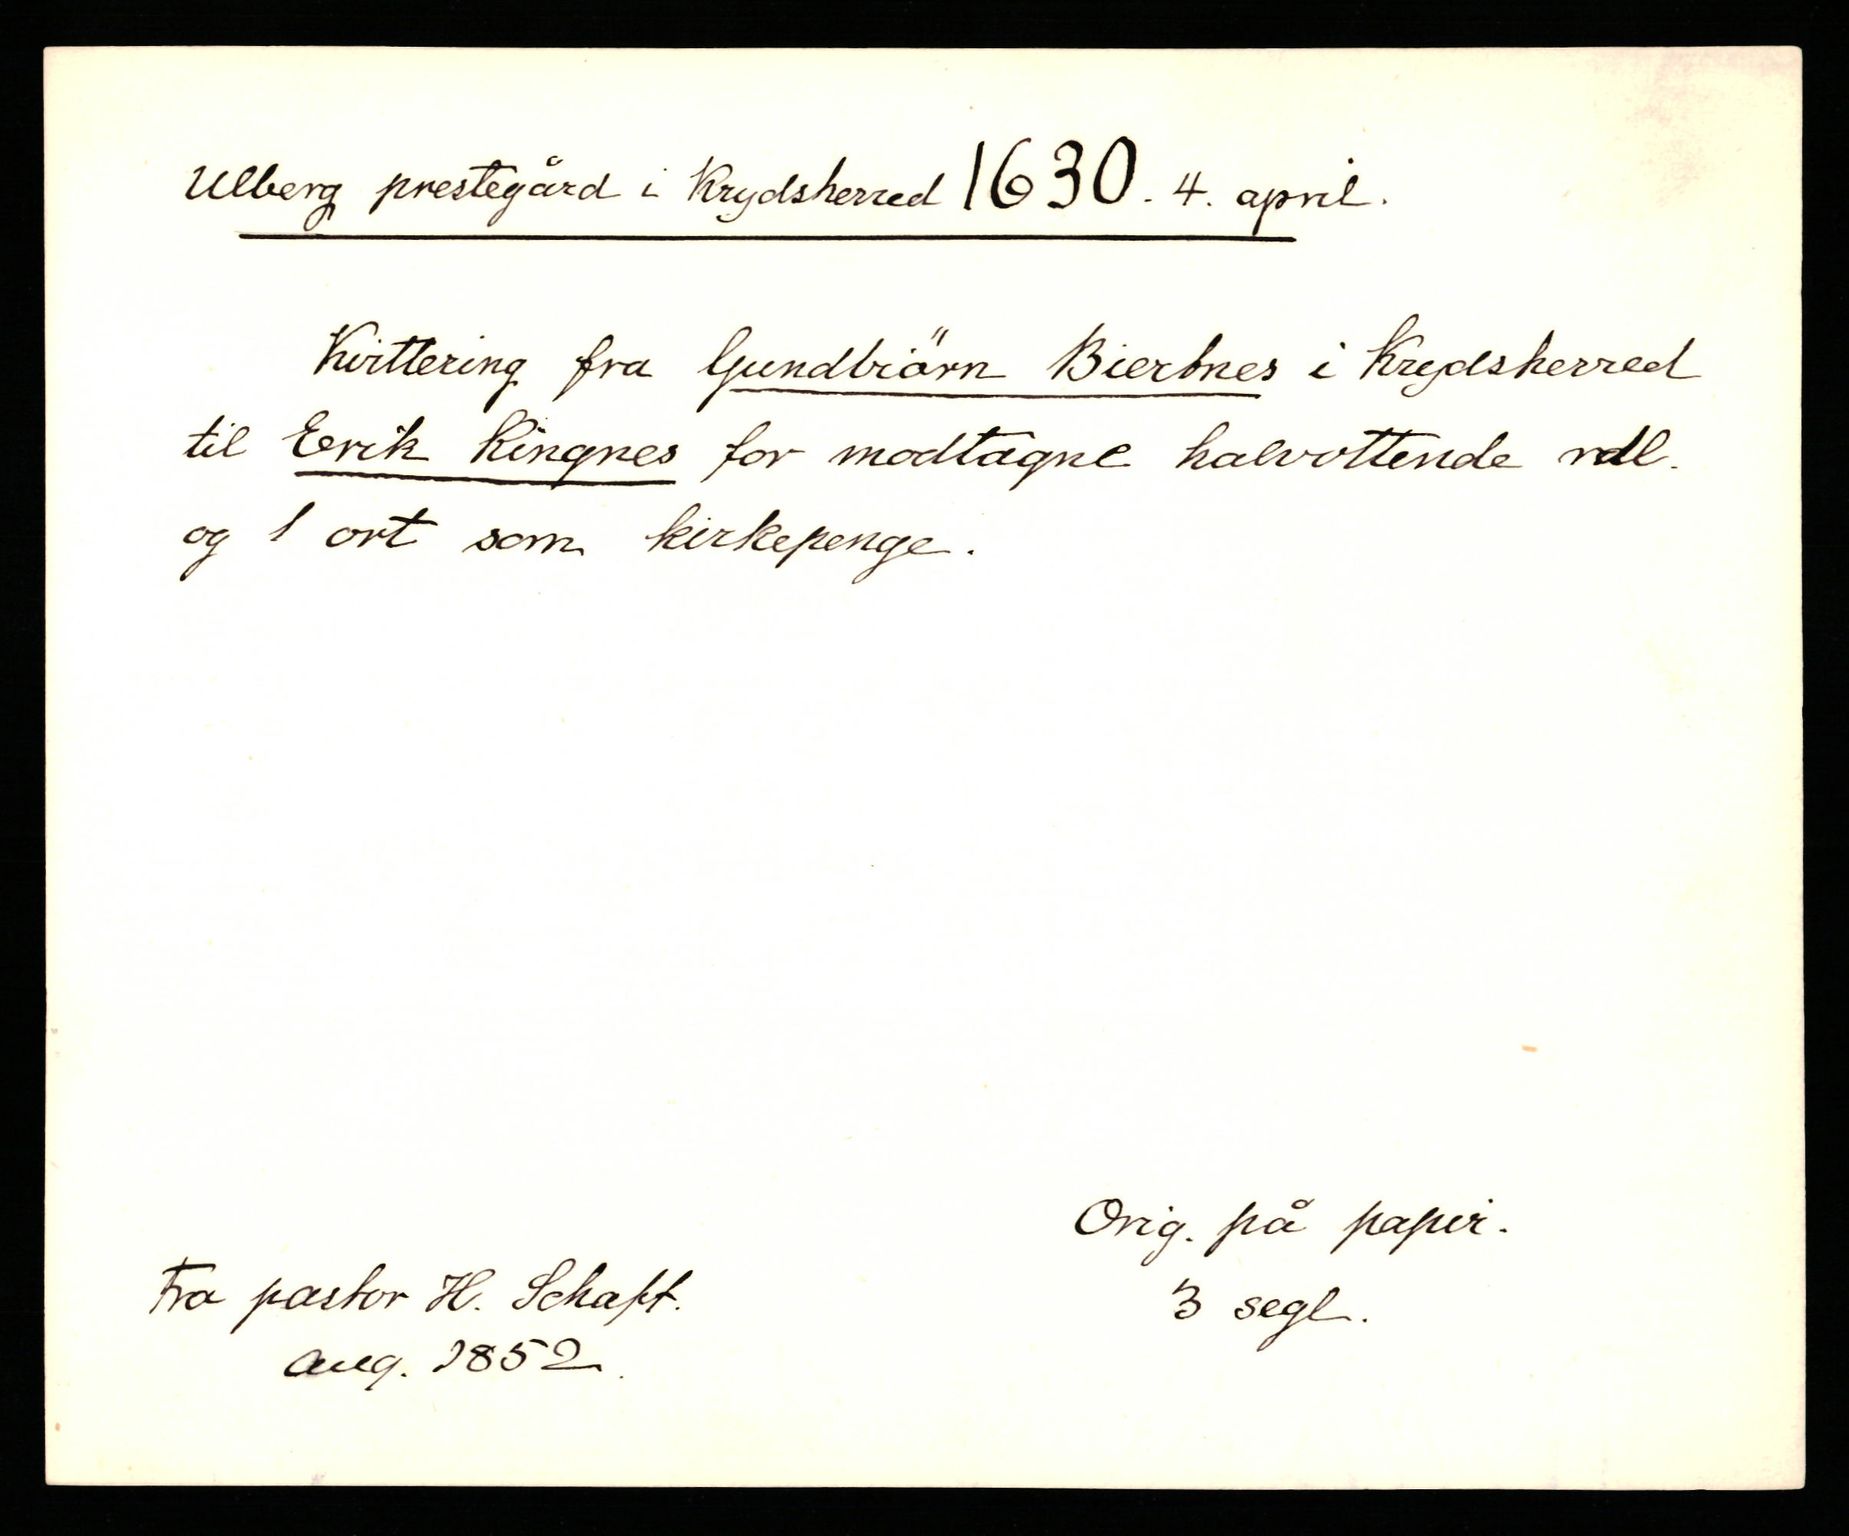 Ulberg prestegård i Krydsherred 1630. 4. april.
Kvittering fra Gundbiörn Bierknes i Krydsherred
til Erik Ringnes for modtagne halvottende rdl.
og 1 ort som kirkepenge.
Orig. på papir.
3 segl.
Fra pastor H. Schaft.
aug. 1852.